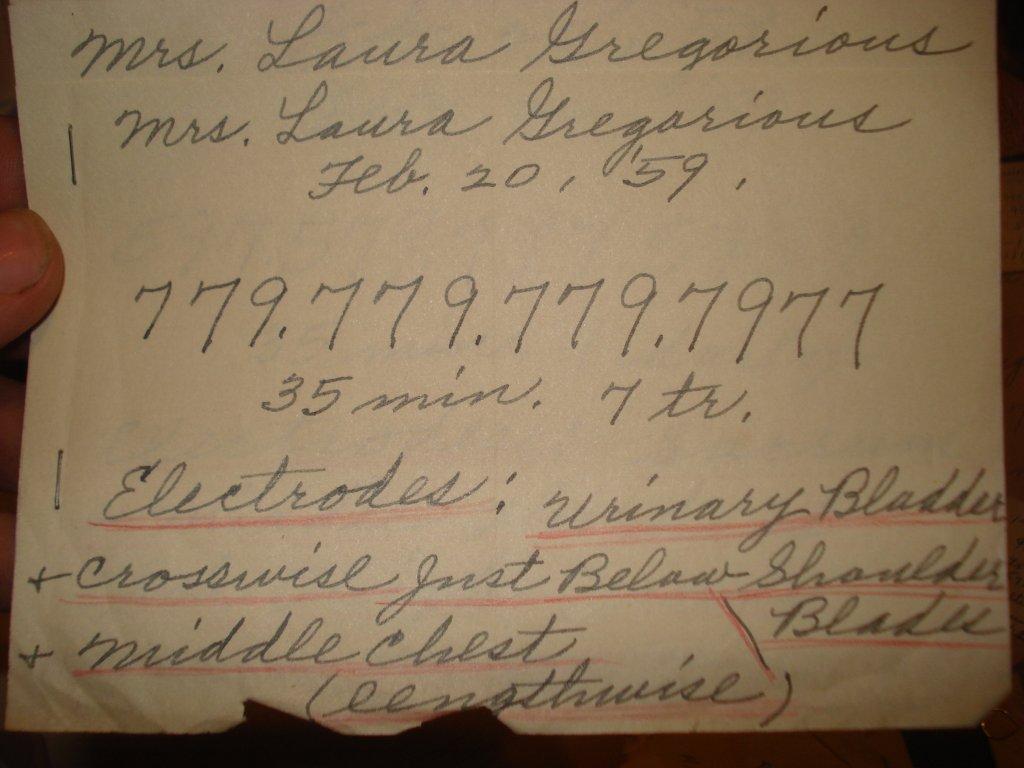 Mrs. Laura Gregorious
Mrs. Laura Gregorious
Feb. 20, '59.
779.779.779.7977
35 min. 7 tr.
Electrodes: Urinary Bladder
+ Crosswise Just Below Shoulder
Blades
+ Middle Chest
(Lengthwise)